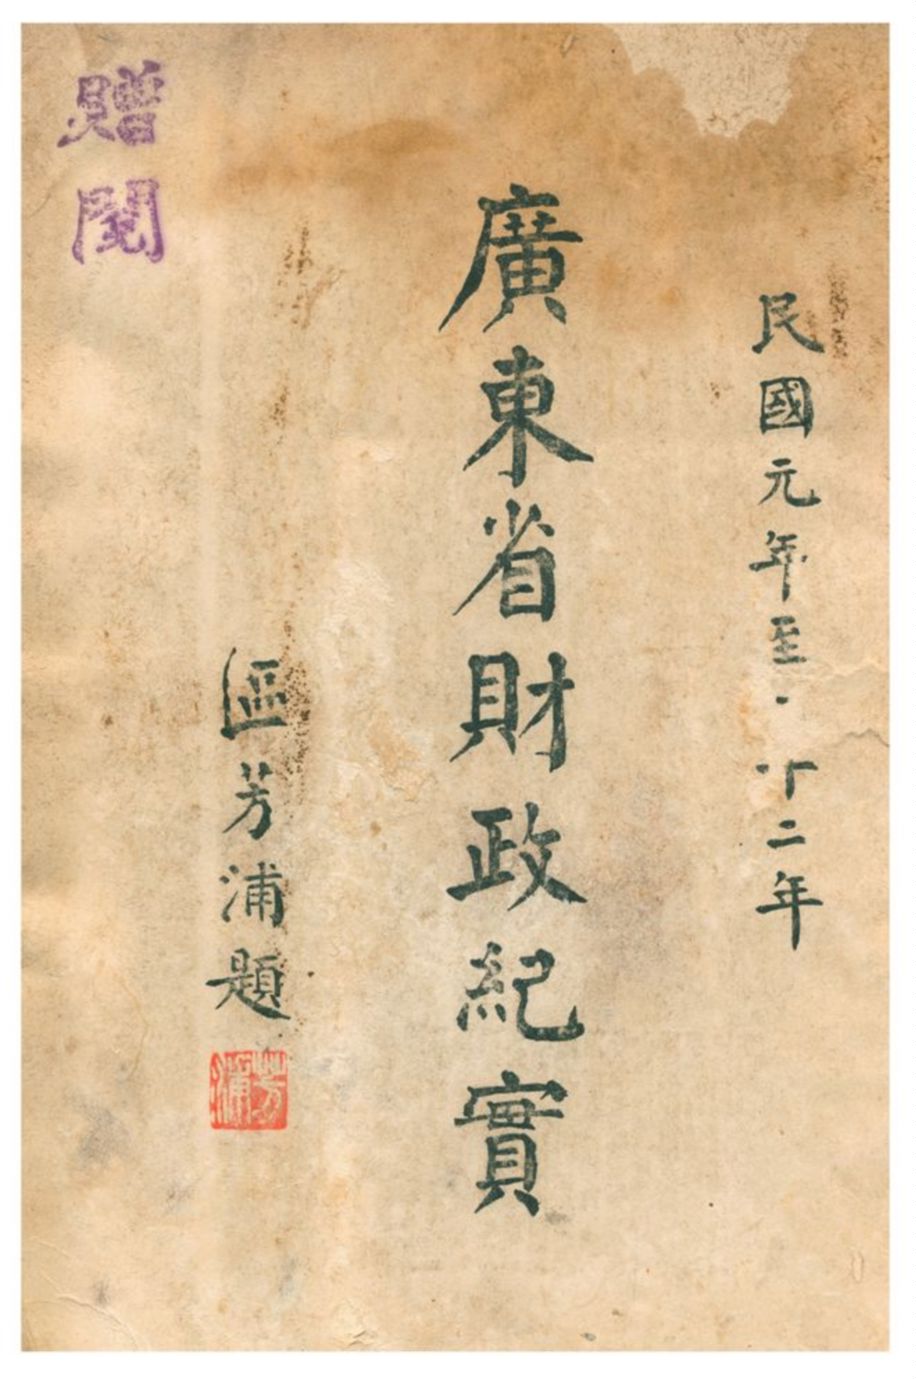 民國元年至十二年
廣東省財政紀實
區芳浦題
芳浦
贈閱